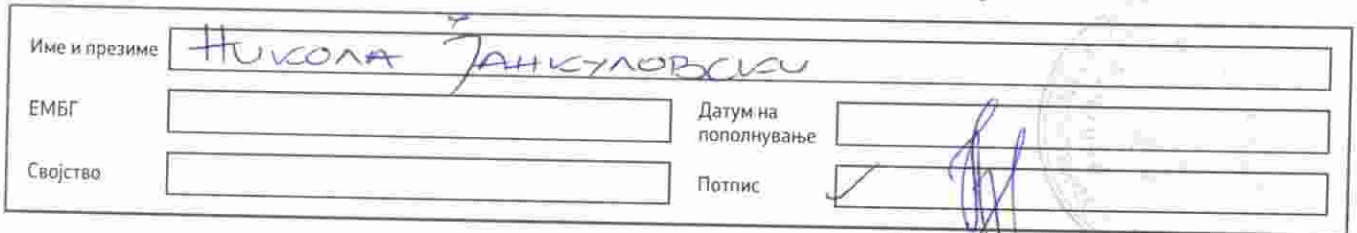 Име и презиме Никола Јанкуловски
ЕМБГ
Датум на
пополнување
Својство
Потпис